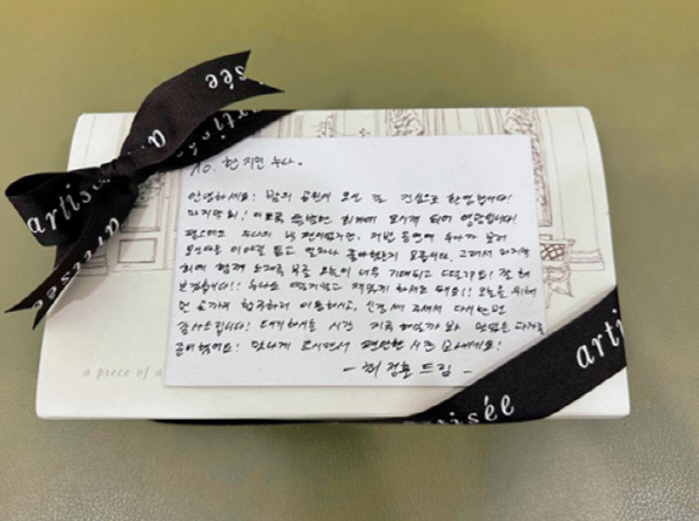 artisée
To. 한지민 누나.
안녕하세요! 밤의 공원에 오신 걸 진심으로 환영합니다!
마지막 회! 이토록 특별한 회차에 모시게 되어 영광입니다!
평소에도 누나의 팬이었지만, 저번 통편에 누나가 보러
오신다는 이야길 듣고 얼마나 좋아했는지 모릅니다. 그래서 마지막
회에 함께 노래할 오늘이 너무 기대되고 떨려요! 잘 해
보겠습니다!! 누나도 재밌게 하세요 돼요!! 오늘을 위해
먼 곳까지 와 주시고, 신경 써 주셔서 다시 한번
감사드립니다! 대기하시는 시간 지루하실까 봐 맛있는 다과를
준비했어요! 맛나게 드시면서 편안한 시간 보내세요!
- 최정훈 드림 -
a piece of a
artisée